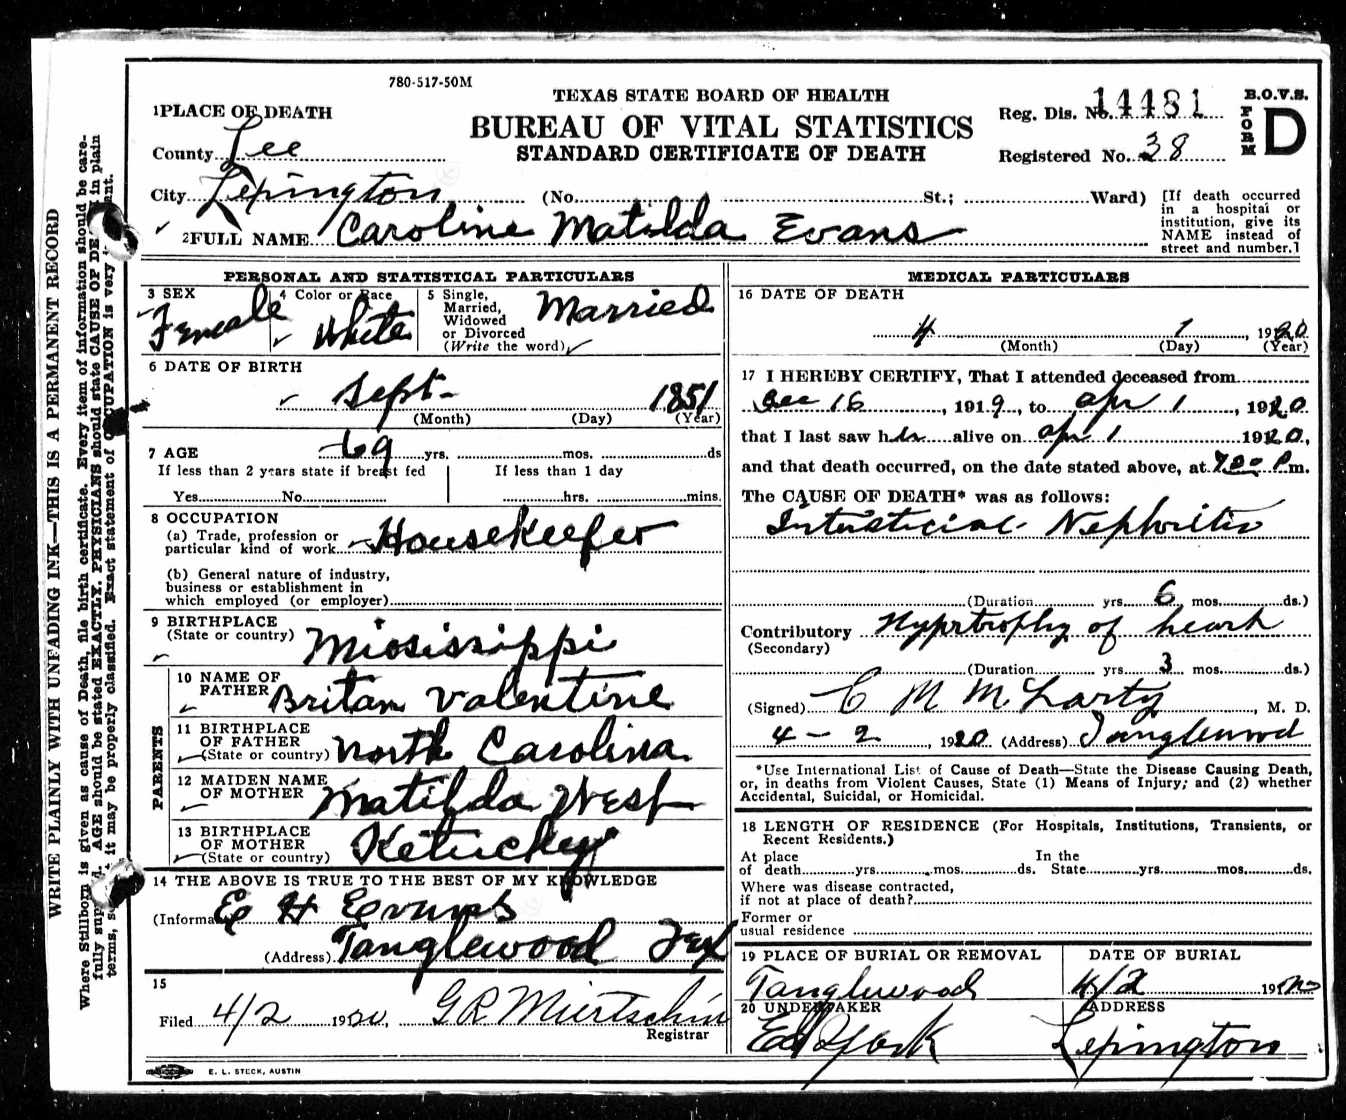 780-517-50M
TEXAS STATE BOARD OF HEALTH
BUREAU OF VITAL STATISTICS
STANDARD CERTIFICATE OF DEATH
Reg. Dis. No. 14481
Registered No. 38
B.O.V.S.
FORM D
1 PLACE OF DEATH
County Lee
City Lexington (No. St.; Ward)
[If death occurred
in a hospital or
institution, give its
NAME instead of
street and number.]
2 FULL NAME Caroline Matilda Evans
PERSONAL AND STATISTICAL PARTICULARS
3 SEX Female
4 Color or Race White
5 Single,
Married,
Widowed
or Divorced
(Write the word)
Married
6 DATE OF BIRTH
Sept- 1851
(Month) (Day) (Year)
7 AGE 69 yrs. mos. ds
If less than 2 years state if breast fed
Yes No
If less than 1 day
hrs. mins.
8 OCCUPATION
(a) Trade, profession or
particular kind of work Housekeefer
(b) General nature of industry,
business or establishment in
which employed (or employer)
9 BIRTHPLACE
(State or country) Miosissippi
PARENTS
10 NAME OF
FATHER Britan Valentine
11 BIRTHPLACE
OF FATHER
(State or country) North Carolina
12 MAIDEN NAME
OF MOTHER Matilda West
13 BIRTHPLACE
OF MOTHER
(State or country) Ketucky
14 THE ABOVE IS TRUE TO THE BEST OF MY KNOWLEDGE
(Informa E H Evans
(Address) Tanglewood Tex
15
Filed 4/2 1920, G R Miertschin
Registrar
MEDICAL PARTICULARS
16 DATE OF DEATH
4 1, 1920
(Month) (Day) (Year)
17 I HEREBY CERTIFY, That I attended deceased from
Dec 16, 1919, to apr 1, 1920
that I last saw her alive on apr 1 1920,
and that death occurred, on the date stated above, at 7 00 P m.
The CAUSE OF DEATH* was as follows:
Intersticial Nephritis
(Duration yrs. 6 mos. ds.)
Contributory Hyprtrophy of heart
(Secondary)
(Duration yrs. 3 mos. ds.)
(Signed) C M McLarty, M. D.
4-2, 1920 (Address) Tanglewood
*Use International List of Cause of Death—State the Disease Causing Death,
or, in deaths from Violent Causes, State (1) Means of Injury; and (2) whether
Accidental, Suicidal, or Homicidal.
18 LENGTH OF RESIDENCE (For Hospitals, Institutions, Transients, or
Recent Residents.)
At place
of death yrs. mos. ds.
In the
State yrs. mos. ds.
Where was disease contracted,
if not at place of death?
Former or
usual residence
19 PLACE OF BURIAL OR REMOVAL
Tanglewood
DATE OF BURIAL
4/2 1920
20 UNDERTAKER
Ed York
ADDRESS
Lexington
E. L. STECK, AUSTIN
WRITE PLAINLY WITH UNFADING INK—THIS IS A PERMANENT RECORD
Where Stillborn is given as cause of Death, file birth certificate. Every item of information should be care-
fully AGE should be stated EXACTLY. PHYSICIANS should state CAUSE OF in plain
terms, it may be properly classified. Exact statement of OCCUPATION is very